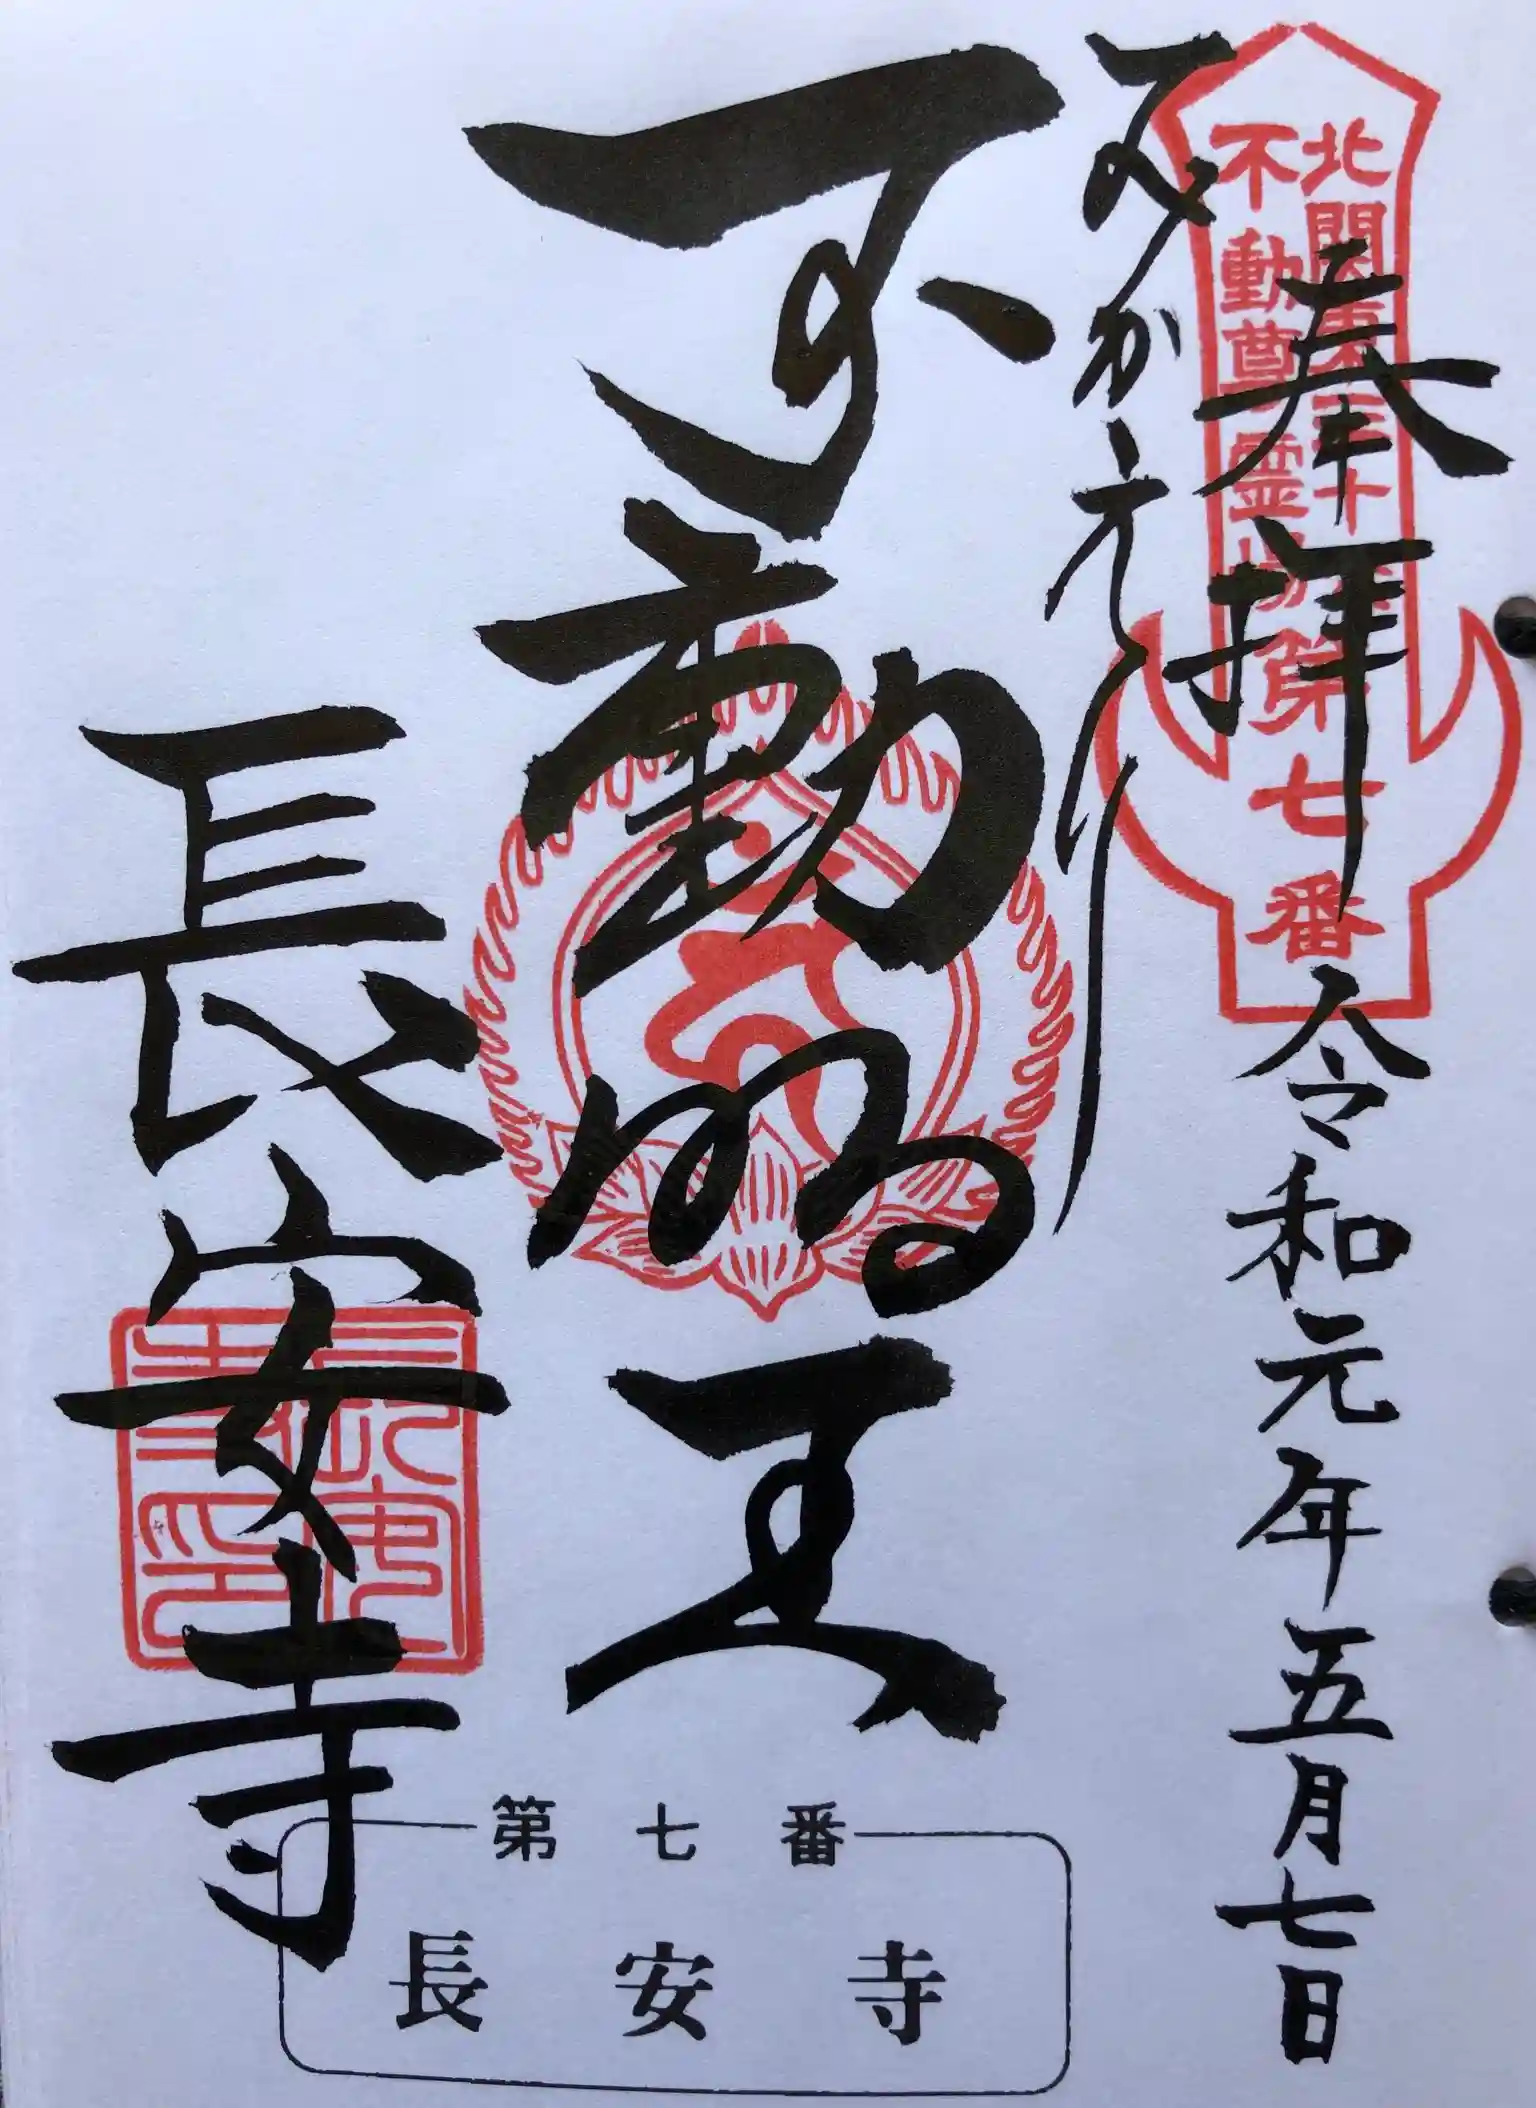 奉拝 令和元年五月七日
北関東三十六
不動尊霊場
第七番
みがえり
不動明王
長安寺
長安寺印
第七番
長安寺